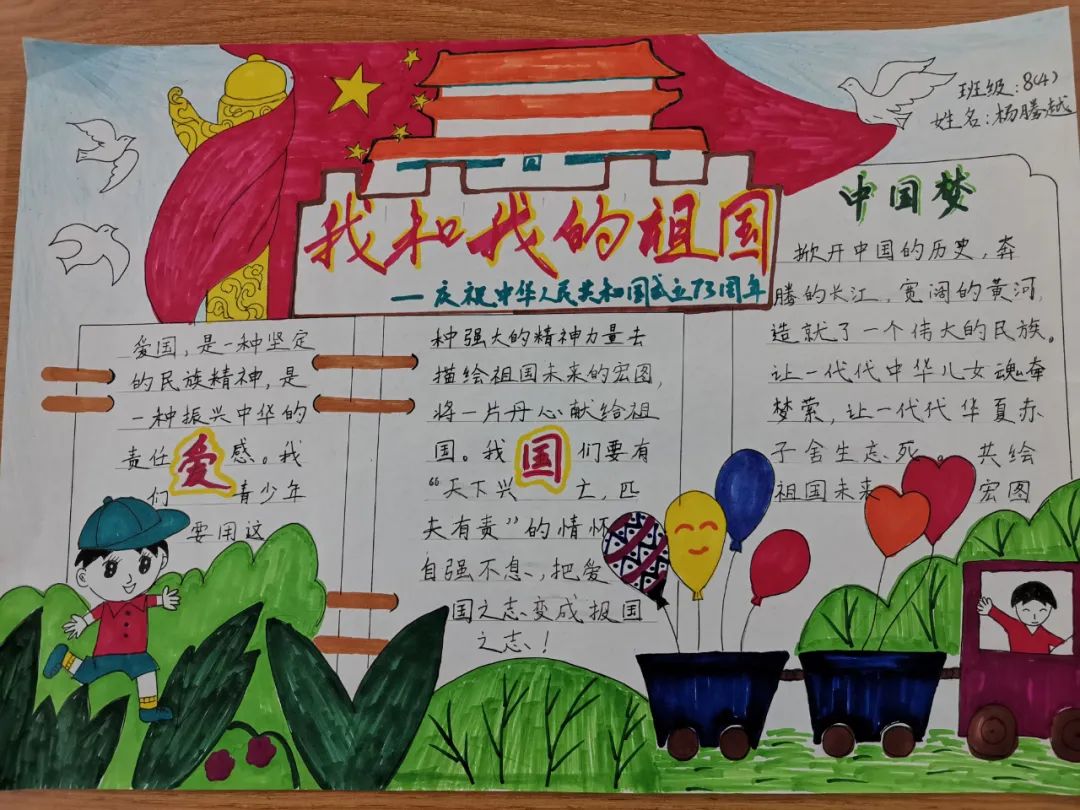 班级:8(4)
姓名:杨腾越
我和我的祖国
—庆祝中华人民共和国成立73周年
爱国,是一种坚定
的民族精神,是
一种振兴中华的
责任爱感。我
们青少年
要用这
种强大的精神力量去
描绘祖国未来的宏图,
将一片丹心献给祖
国。我国们要有
“天下兴亡,匹
夫有责”的情怀
自强不息、,把爱
国之志变成报国
之志、!
中国梦
掀开中国的历史,奔
腾的长江,宽阔的黄河,
造就了一个伟大的民族。
让一代代中华儿女魂牵
梦萦,让一代代华夏赤
子舍生忘死。共绘
祖国未来宏图